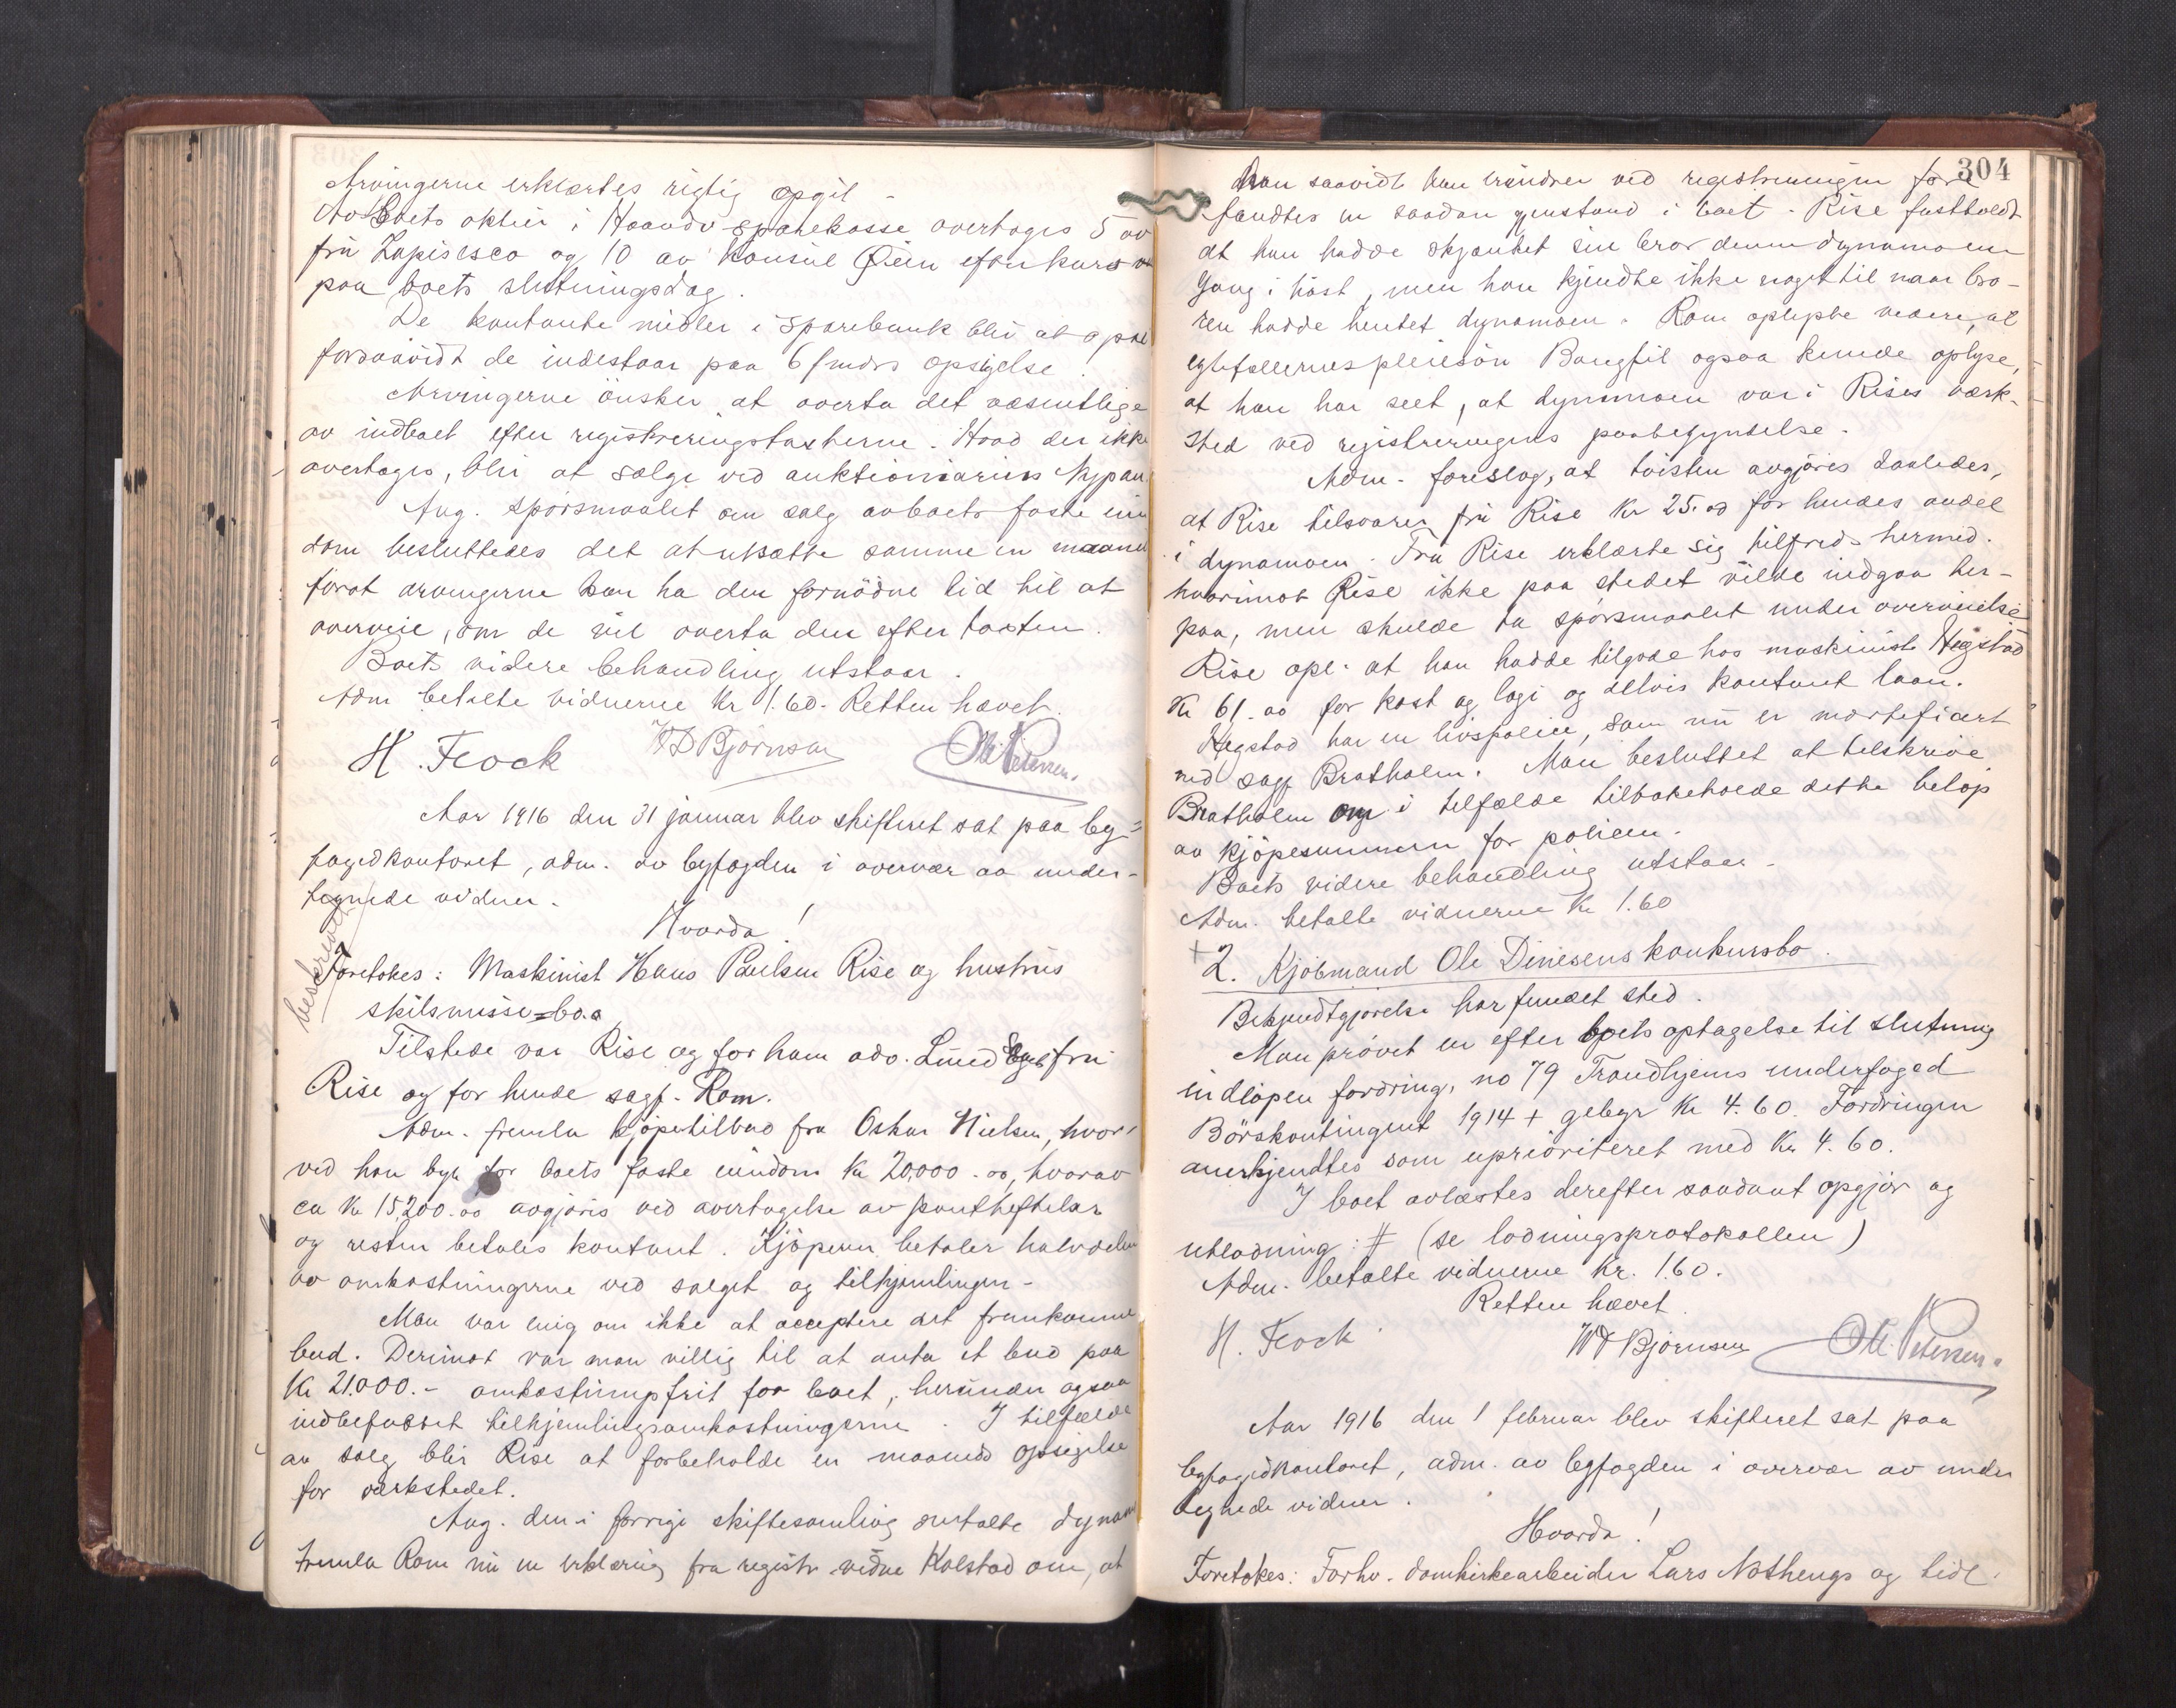 Arvingerne erklærtes rigtig opgit -
Av boets aktier i Haandv. sparekasse overtages 5 av
fru Lapisesco og 10 av konsul Øien efter kurs
paa boets slutningsdag.
De kontante midler i Sparebank blir at opsi
forsaavidt de indestaar paa 6 mdrs opsigelse.
Arvingerne ønsker at overta det væsentlige
av indboet efter registreringstaksterne. Hvad der ikke
overtages, blir at sælge ved auktionarius Nypan.
Ang. spørsmaalet om salg av boets faste eien
dom besluttedes det at utsætte samme en maaned
forat arvingerne kan ha den fornødne tid til at
overveie, om de vil overta den efter taxten.
Boets videre behandling utstaar.
Adm betalte vidnerne Kr 1.60. Retten hævet.
H. Flock WD Bjørnson Ole Petersen.
Aar 1916 den 31 januar blev skifteret sat paa by=
fogedkontoret, adm. av byfogden i overvær av under-
tegnede vidner.
Hvorda!
beskrevet
Foretokes: Maskinist Hans Paulsen Rise og hustrus
skilsmisse=bo.
Tilstede var Rise og for ham adv. Lund fru
Rise og for hende sagf. Rom.
Adm. fremla kjøpetilbud fra Oskar Nielsen, hvor-
ved han byr for boets faste eiendom Kr 20,000.00, hvorav
ca Kr 15,200.00 avgjøres ved overtagelse av pantheftelser
og resten betales kontant. Kjøperen betaler halvdelen
av omkostningerne ved salget og tilhjemlingen -
Man var enig om ikke at acceptere det fremkomne
bud. Derimot var man villig til at anta et bud paa
Kr 21.000.- omkostningsfrit for boet, herunder ogsaa
indbefattet tilhjemlingsomkostningerne. I tilfælde
av salg blir Rise at forbeholde en maaneds opsigelse
for verkstedet.
Ang. den i forrige skiftesamling omtalte dynamo
fremla Rom nu en erklæring fra registr. vidne Kolstad om, at
304
han saavidt han erindrer ved registreringen fore
fandtes en saadan gjenstand i boet. Rise fastholdt
at han hadde skjænket sin bror denne dynamo en
gang i høst, men han kjendte ikke noget til naar bro-
ren hadde hentet dynamoen. Rom oplyste videre, at
egtefællernes pleiesøn Bangfil ogsaa kunde oplyse,
at han har seet, at dynamoen var i Rises værk-
sted ved registreringens paabegyndelse.
Adm. foreslog, at tvisten avgjøres saaledes,
at Rise tilsvarer fru Rise Kr 25.00 for hendes andel
i dynamoen. Fru Rise erklærte sig tilfreds hermed.
hvorimot Rise ikke paa stedet vilde indgaa her-
paa, men skulde ta spørsmaalet under overveielse
Rise opl. at han hadde tilgode hos maskinist Hegstad
Kr 61.00 for kost og logi og delvis kontant laan.
Hegstad har en livspolice, som nu er mortificert
ved sagf Bratholm. Man besluttet at tilskrive
Bratholm om i tilfælde tilbakeholde dette beløp
av kjøpesummen for policen.
Boets videre behandling utstaar -
Adm. betalte vidnerne Kr 1.60
+ 2. Kjøbmand Ole Dinesens konkursbo.
Bekjendtgjørelse har fundet sted.
Man prøvet en efter boets optagelse til slutning
indløpen fordring, no 79 Trondhjems underfoged
Börskontingent 1914 + gebyr Kr 4.60. Fordringen
anerkjendtes som uprioriteret med Kr 4.60.
I boet avlæstes derefter saadant opgjør og
utlodning: # (se lodningsprotokollen)
Adm. betalte vidnerne Kr. 1.60.
Retten hævet.
H. Flock WD Bjørnsen Ole Petersen.
Aar 1916 den 1 februar blev skifteret sat paa
byfogedkontoret, adm. av byfogden i overvær av under
tegnede vidner.
Hvorda!
Foretokes: Forhv. domkirkearbeider Lars Nøthengs og tidl.